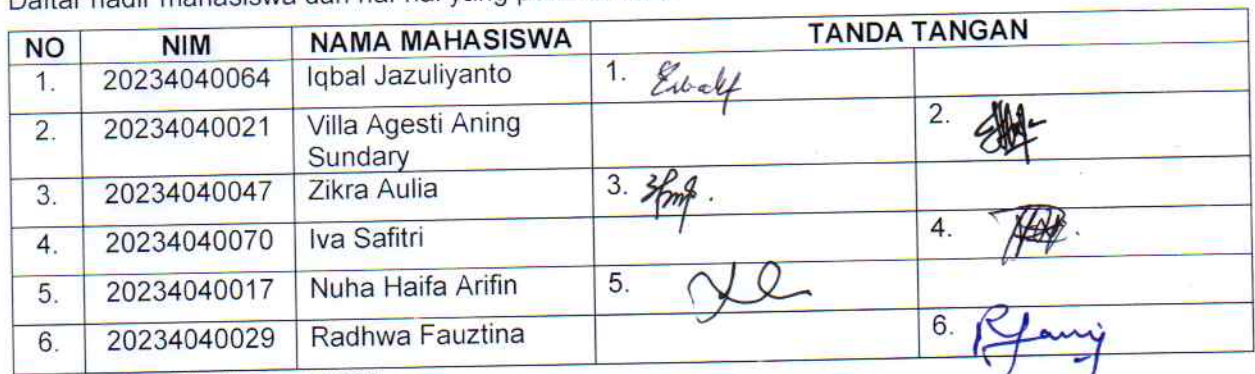 Daftar hadir mahasiswa dan hal-hal yang
NO NIM NAMA MAHASISWA TANDA TANGAN
1. 20234040064 Iqbal Jazuliyanto 1.
2. 20234040021 Villa Agesti Aning 2.
Sundary
3. 20234040047 Zikra Aulia 3.
4. 20234040070 Iva Safitri 4.
5. 20234040017 Nuha Haifa Arifin 5.
6. 20234040029 Radhwa Fauztina 6.